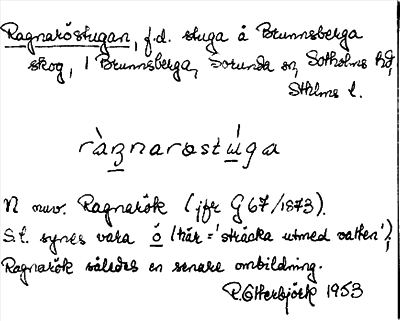 Ragnaröstugan, f.d. stuga å Brunnsberga
skog, 1 Brunnsberga, Sorunda sn, Sotholms hd,
Sthlms l.
ràgnarostúga
N nuv. Ragnarök (jfr G 67/1873).
S.l. synes vara ö (här = 'sträcka utmed vatten');
Ragnarök således en senare ombildning.
R. Otterbjörk 1953